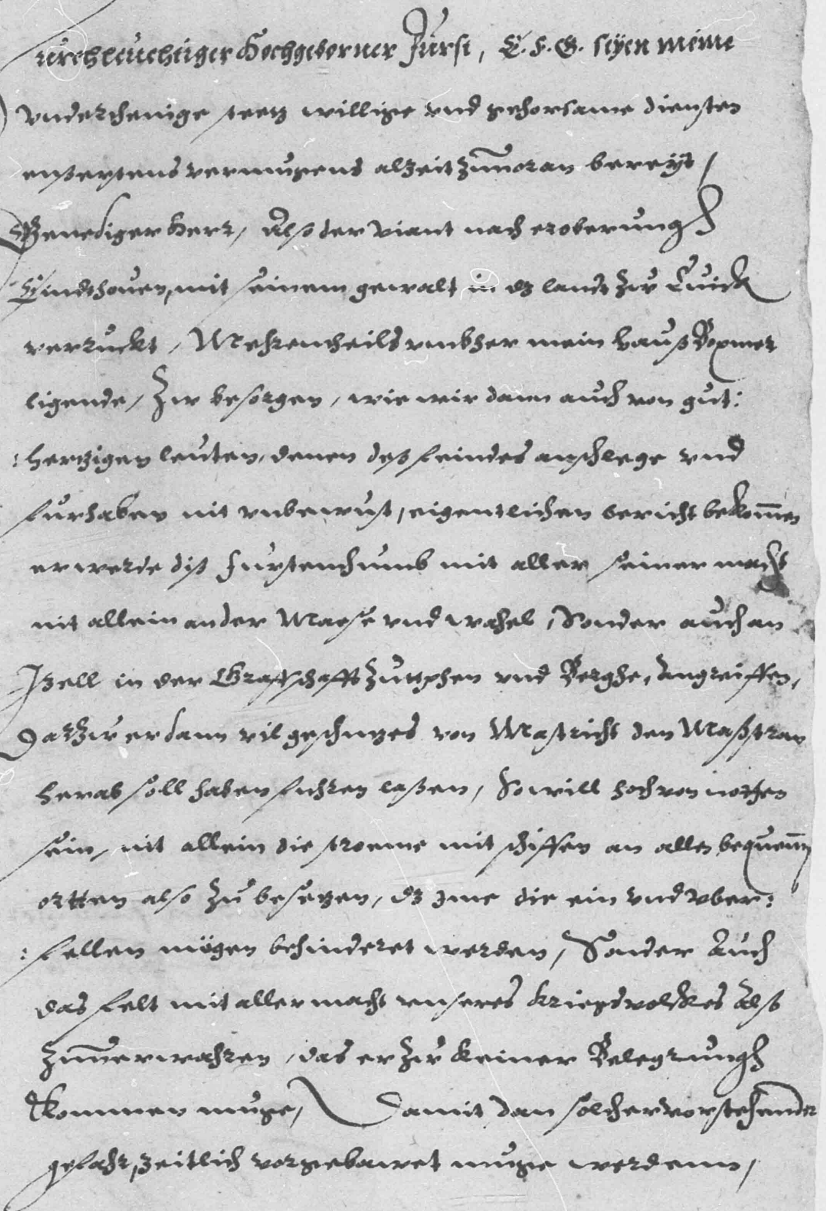 Durchleuchtiger Hochgeborner Furst, E. F. G. seyen meine
underthenige stetz willige vnd gehorsame diensten
eusersten vermugens alzeit zuuoran bereyt /
Genediger Herr, Alß der viant nach eroberungh
Eindthouen, mit seinem gewalt in dz landt zu Cuick
verruckt, Mehrentheils vmbher mein hauß Boxmer
ligende, Zu besorgen, wie wir dann auch von gut:
:hertzigen leuten, denen deß feindes anschlege vnd
furhaben nit vnbewust, eigentlichen bericht bekommen
er werde diß Furstenthumb mit aller seiner macht
nit allein an der Maese vnd wahel, Sonder auch an
Ißell in der Graffschafft Zutphen vnd Berghe, Angreiffen,
Dar Zu er dann vil geschutzes von Mastricht den Maßstrom
herab soll haben fuhren laßen, So will hoch von nothen
sein, nit allein die stroeme mit schiffen an allen bequemen
ortten also zu besetzen, dz Ime die ein vnd vber:
:fellen mögen behinderet werden, Sonder Auch
das felt mit aller macht vnseres kriegsvolckes Alß
zuuerwahren, das er zu keiner Belegrungh
kommen muge, Damit dan solcher vorstehender
gefahr, zeitlich vorgebawet muge werdenn,